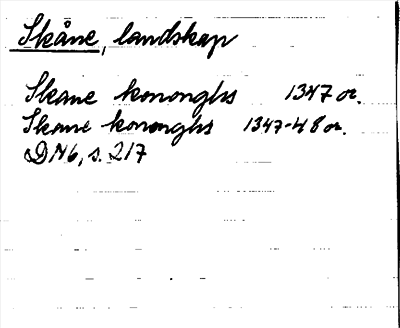 Skåne, landskap
Skane kononghs 1347 or.
Skane kononghs 1347-48 or.
DN6, s. 217